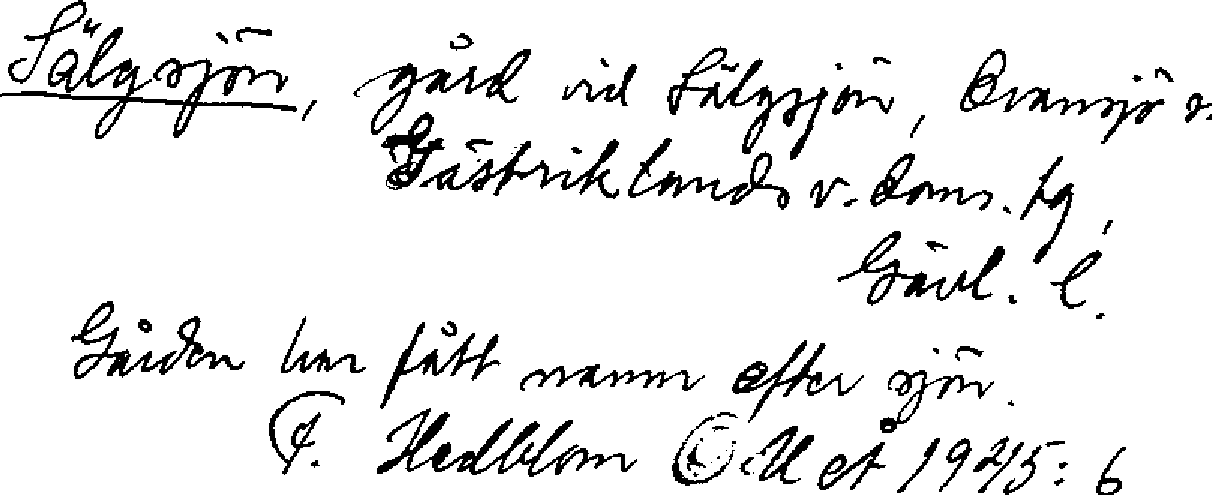 Sälgsjön, gård vid Sälgsjön, Ovansjö s.
Gästriklands v. doms. tg,
Gävl. l.
Gården har fått namn efter sjön.
F. Hedblom i UoÅ 1945: 6